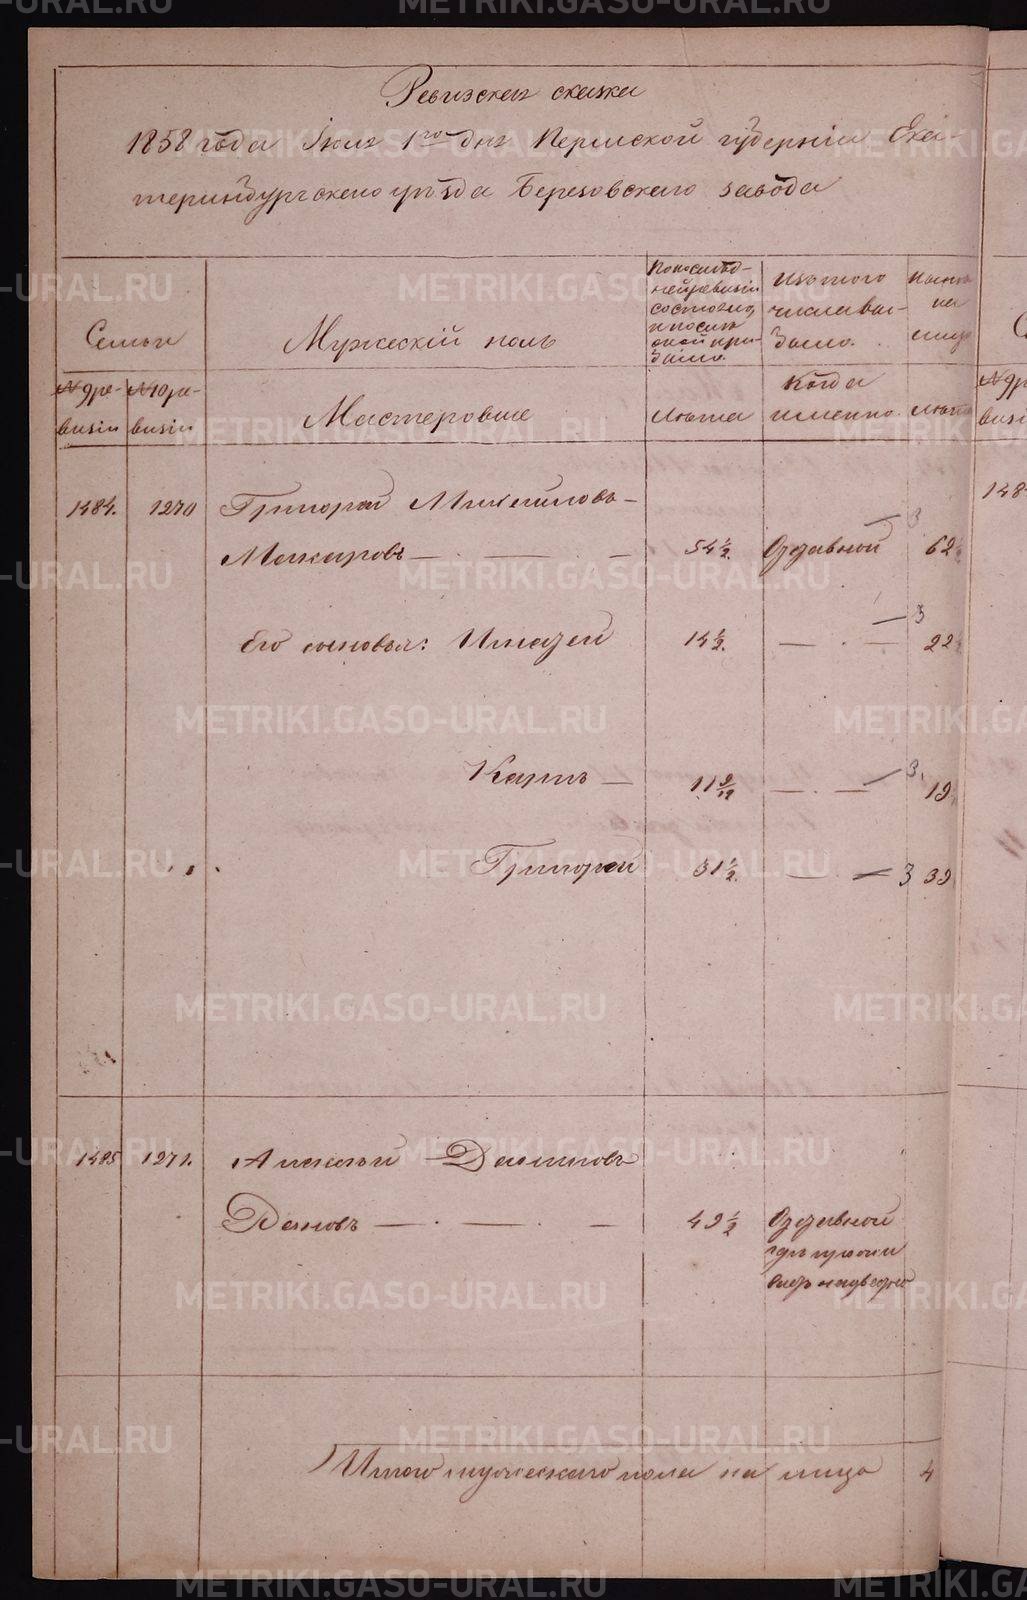 Ревизская сказка
1858 года Іюля 1го дня Пермской губерніи Ека-
теринбургскаго уѣзда Березовскаго завода
Семьи
Мужескій полъ
По послѣд-
ней ревизіи
состояло,
и послѣ
оной при-
было.
Изъ того
числа вы-
было.
Нынѣ
на
лицо
№ 9 ре-
визіи
№ 10 ре-
визіи
Мастеровые
Лѣта
Когда
именно.
Лѣта
1484.
1270
Григорей Михайловъ
Макаровъ
54 1/2.
Отставной
3
62
Его сыновья:
14 1/2.
3
22
Карпъ
11 9/12
3.
19
Григорей
31 1/2.
3
39
1485
1271.
Алексѣй
49 1/2
Отставной
Итого мужескаго пола на лицо
4
METRIKI.GASO-URAL.RU